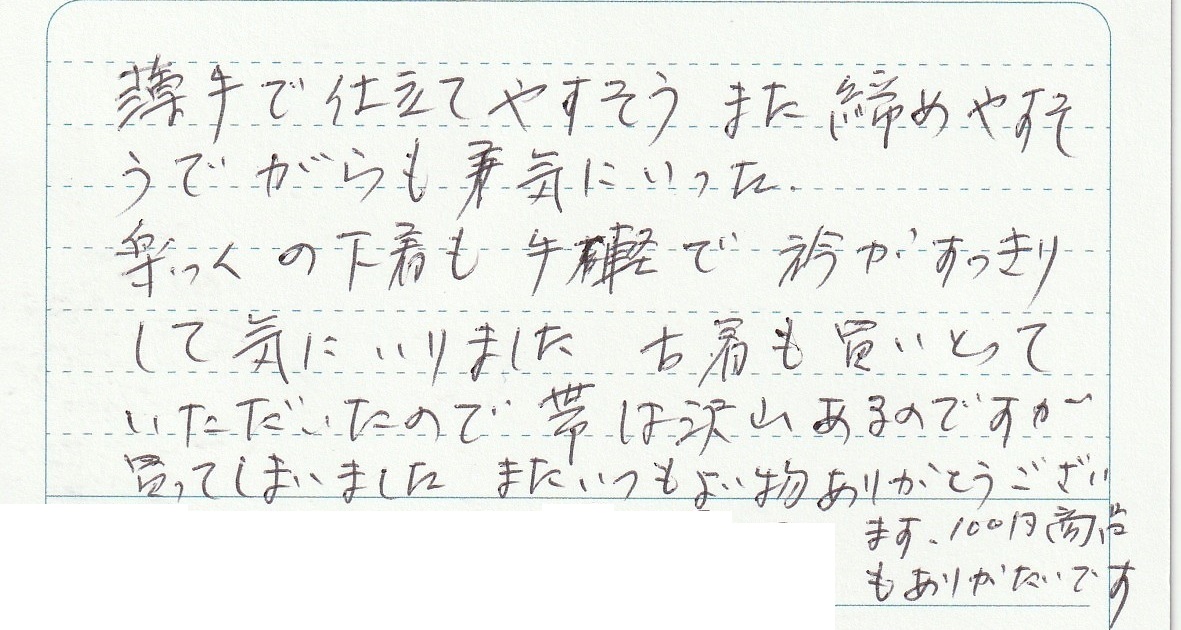 薄手で仕立てやすそう また 締めやすそ
うで がらも 気にいった.
楽っくの下着も 手軽で 衿がすっきり
して 気にいりました 古着も買いとって
いただいたので 帯は沢山あるのですが
買ってしまいました またいつもよい物ありがとうござい
ます、100円商品
もありがたいです